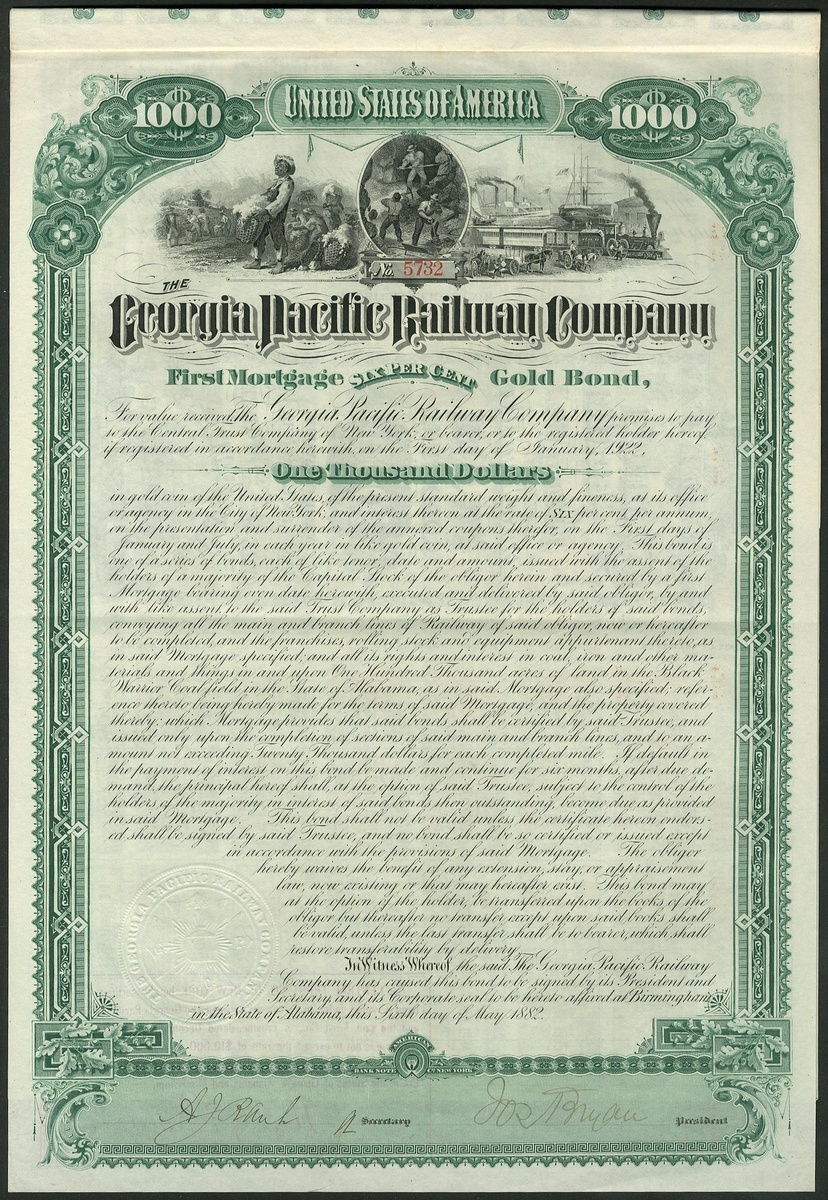 UNITED STATES OF AMERICA
1000
1000
No. 5732
THE
Georgia Pacific Railway Company
First Mortgage SIX PER CENT. Gold Bond,
For value received, The Georgia Pacific Railway Company promises to pay
to the Central Trust Company of New York, or bearer, or to the registered holder hereof,
if registered in accordance herewith, on the First day of January, 1922.
One Thousand Dollars
in gold coin of the United States, of the present standard weight and fineness, at its office
or agency in the City of New York, and interest thereon at the rate of Six per cent. per annum,
on the presentation and surrender of the annexed coupons therefor, on the First days of
January and July, in each year in like gold coin, at said office or agency. This bond is
one of a series of bonds, each of like tenor, date and amount, issued with the assent of the
holders of a majority of the Capital Stock of the obligor herein and secured by a first
Mortgage bearing even date herewith, executed and delivered by said obligor, by and
with like assent, to the said Trust Company as Trustee for the holders of said bonds,
conveying all the main and branch lines of Railway of said obligor, now or hereafter
to be completed, and the franchises, rolling stock and equipment appurtenant thereto, as
in said Mortgage specified; and all its rights and interest in coal, iron and other ma-
terials and things in and upon One Hundred Thousand acres of land in the Black
Warrior Coal field in the State of Alabama, as in said Mortgage also specified; refer-
ence thereto being hereby made for the terms of said Mortgage, and the property covered
thereby; which Mortgage provides that said bonds shall be certified by said Trustee, and
issued only upon the completion of sections of said main and branch lines, and to an a-
mount not exceeding Twenty Thousand dollars for each completed mile. If default in
the payment of interest on this bond be made and continue for six months, after due de-
mand, the principal hereof shall, at the option of said Trustee, subject to the control of the
holders of the majority in interest of said bonds then outstanding, become due as provided
in said Mortgage. This bond shall not be valid unless the certificate hereon endors-
ed shall be signed by said Trustee, and no bond shall be so certified or issued except
in accordance with the provisions of said Mortgage. The obligor
hereby waives the benefit of any extension, stay, or appraisement
law, now existing or that may hereafter exist. This bond may
at the option of the holder, be transferred upon the books of the
obligor but thereafter no transfer except upon said books shall
be valid, unless the last transfer shall be to bearer, which shall
restore transferability by delivery.
In Witness Whereof the said The Georgia Pacific Railway
Company has caused this bond to be signed by its President and
Secretary, and its Corporate seal to be hereto affixed at Birmingham
in the State of Alabama, this Sixth day of May 1882.
THE GEORGIA PACIFIC RAILWAY COMPANY
AMERICAN
BANK NOTE Co. NEW YORK
Secretary
Jos Bryan President